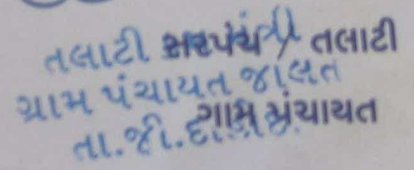 તલાટી સરપંચશ્રી તલાટી
ગ્રામ પંચાયત જાલત
તા.જી.દાહોદ ગ્રામ પંચાયત